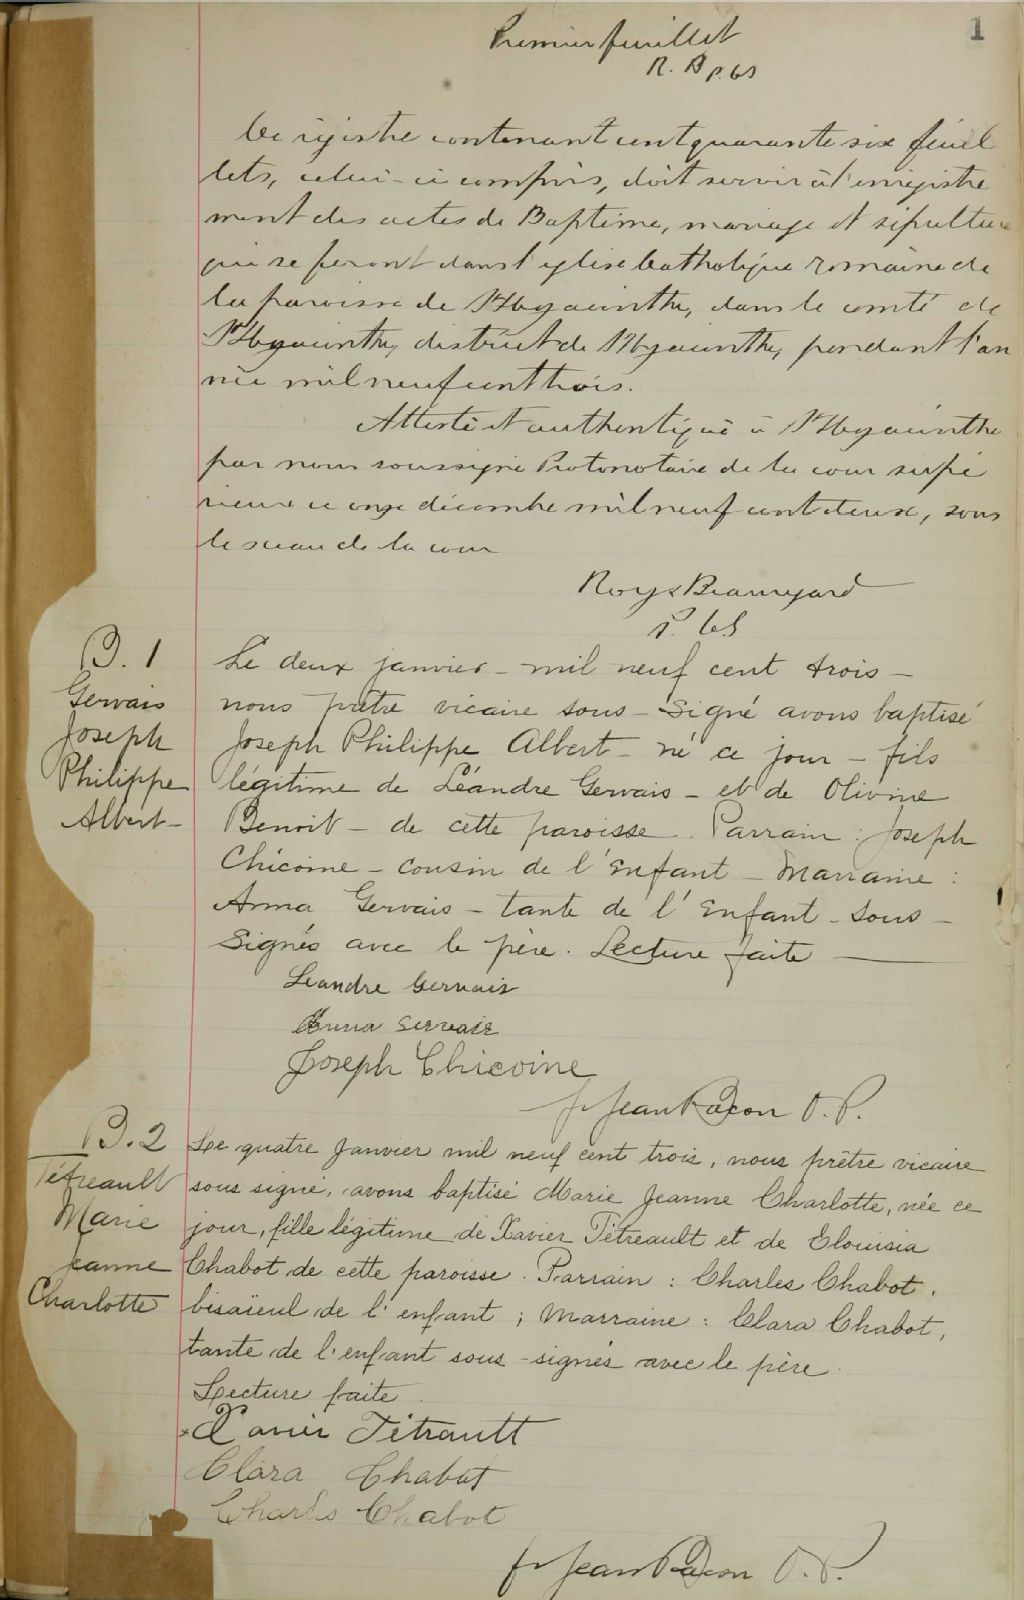 1
Premier feuillet
R. B p. CS
Ce régistre contenant cent quarante six feuil
lets, celui-ci compris, doit servir à l'enregistre
ment des actes de Baptême, mariage et sépulture
qui se feront dans l'église Catholique romaine de
la paroisse de St Hyacinthe, dans le comté de
St Hyacinthe, district de St Hyacinthe, pendant l'an
née mil neuf cent trois.
Attesté et authentiqué à St Hyacinthe
par nous soussigné Protonotaire de la cour supé
rieure ce onze décembre mil neuf cent deux, sous
le sceau de la cour
Roy & Beauregard
P. CS
B. 1
Gervais
Joseph
Philippe
Albert -
Le deux janvier - mil neuf cent trois -
nous prêtre vicaire sous - signé avons baptisé
Joseph Philippe Albert - né ce jour - fils
légitime de Léandre Gervais - et de Olivine
Benoit - de cette paroisse. Parrain : Joseph
Chicoine - cousin de l'Enfant - Marraine :
Anna Gervais - tante de l'Enfant - sous -
signés avec le père. Lecture faite
Leandre Gervais
Anna Gervais
Joseph Chicoine
fr Jean O. P.
B. 2
Tétreault
Marie
Jeanne
Charlotte
Le quatre Janvier mil neuf cent trois, nous prêtre vicaire
sous signé, avons baptisé Marie Jeanne Charlotte, née ce
jour, fille légitime de Xavier Tétreault et de
Chabot de cette paroisse. Parrain : Charles Chabot,
bisaïeul de l'enfant ; Marraine : Clara Chabot,
tante de l'enfant sous-signés avec le père.
Lecture faite.
Xavier Tétrault
Clara Chabot
Charles Chabot
fr Jean O. P.